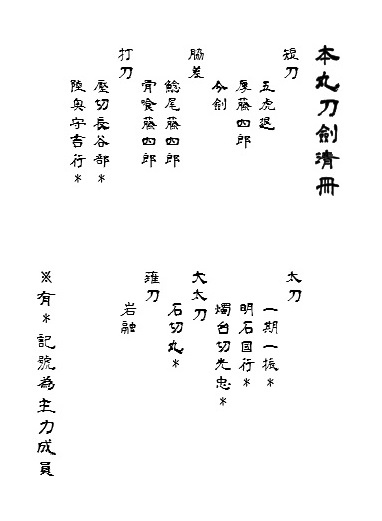 本丸刀劍清冊
短刀
五虎退
厚藤四郎
今劍
脇差
鯰尾藤四郎
骨喰藤四郎
打刀
壓切長谷部*
陸奧守吉行*
太刀
一期一振*
明石國行*
燭台切光忠*
大太刀
石切丸*
薙刀
岩融
※有*記號為主力成員